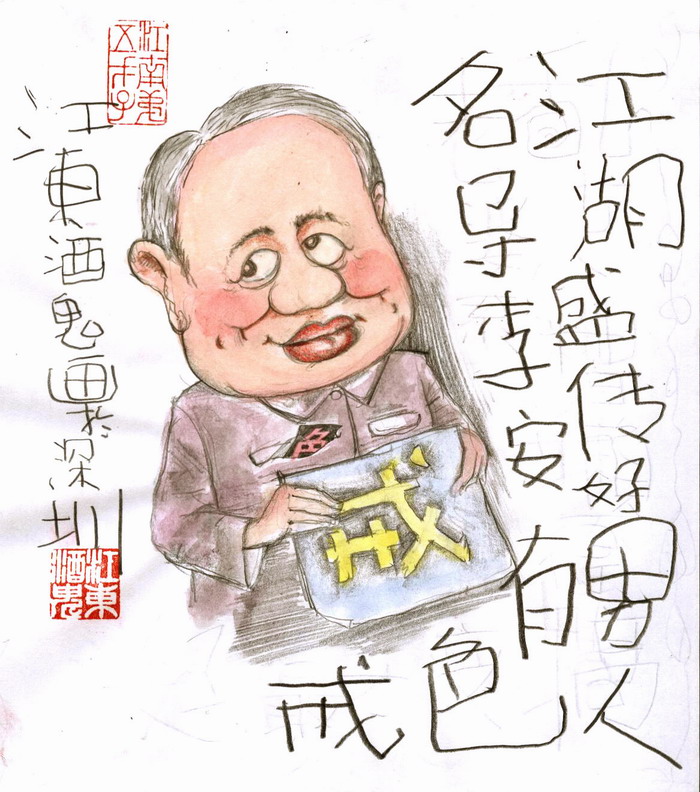 江湖盛传好男人
名导李安有色戒
色
戒
江南弟五才子
江東酒鬼画於深圳
江東酒鬼